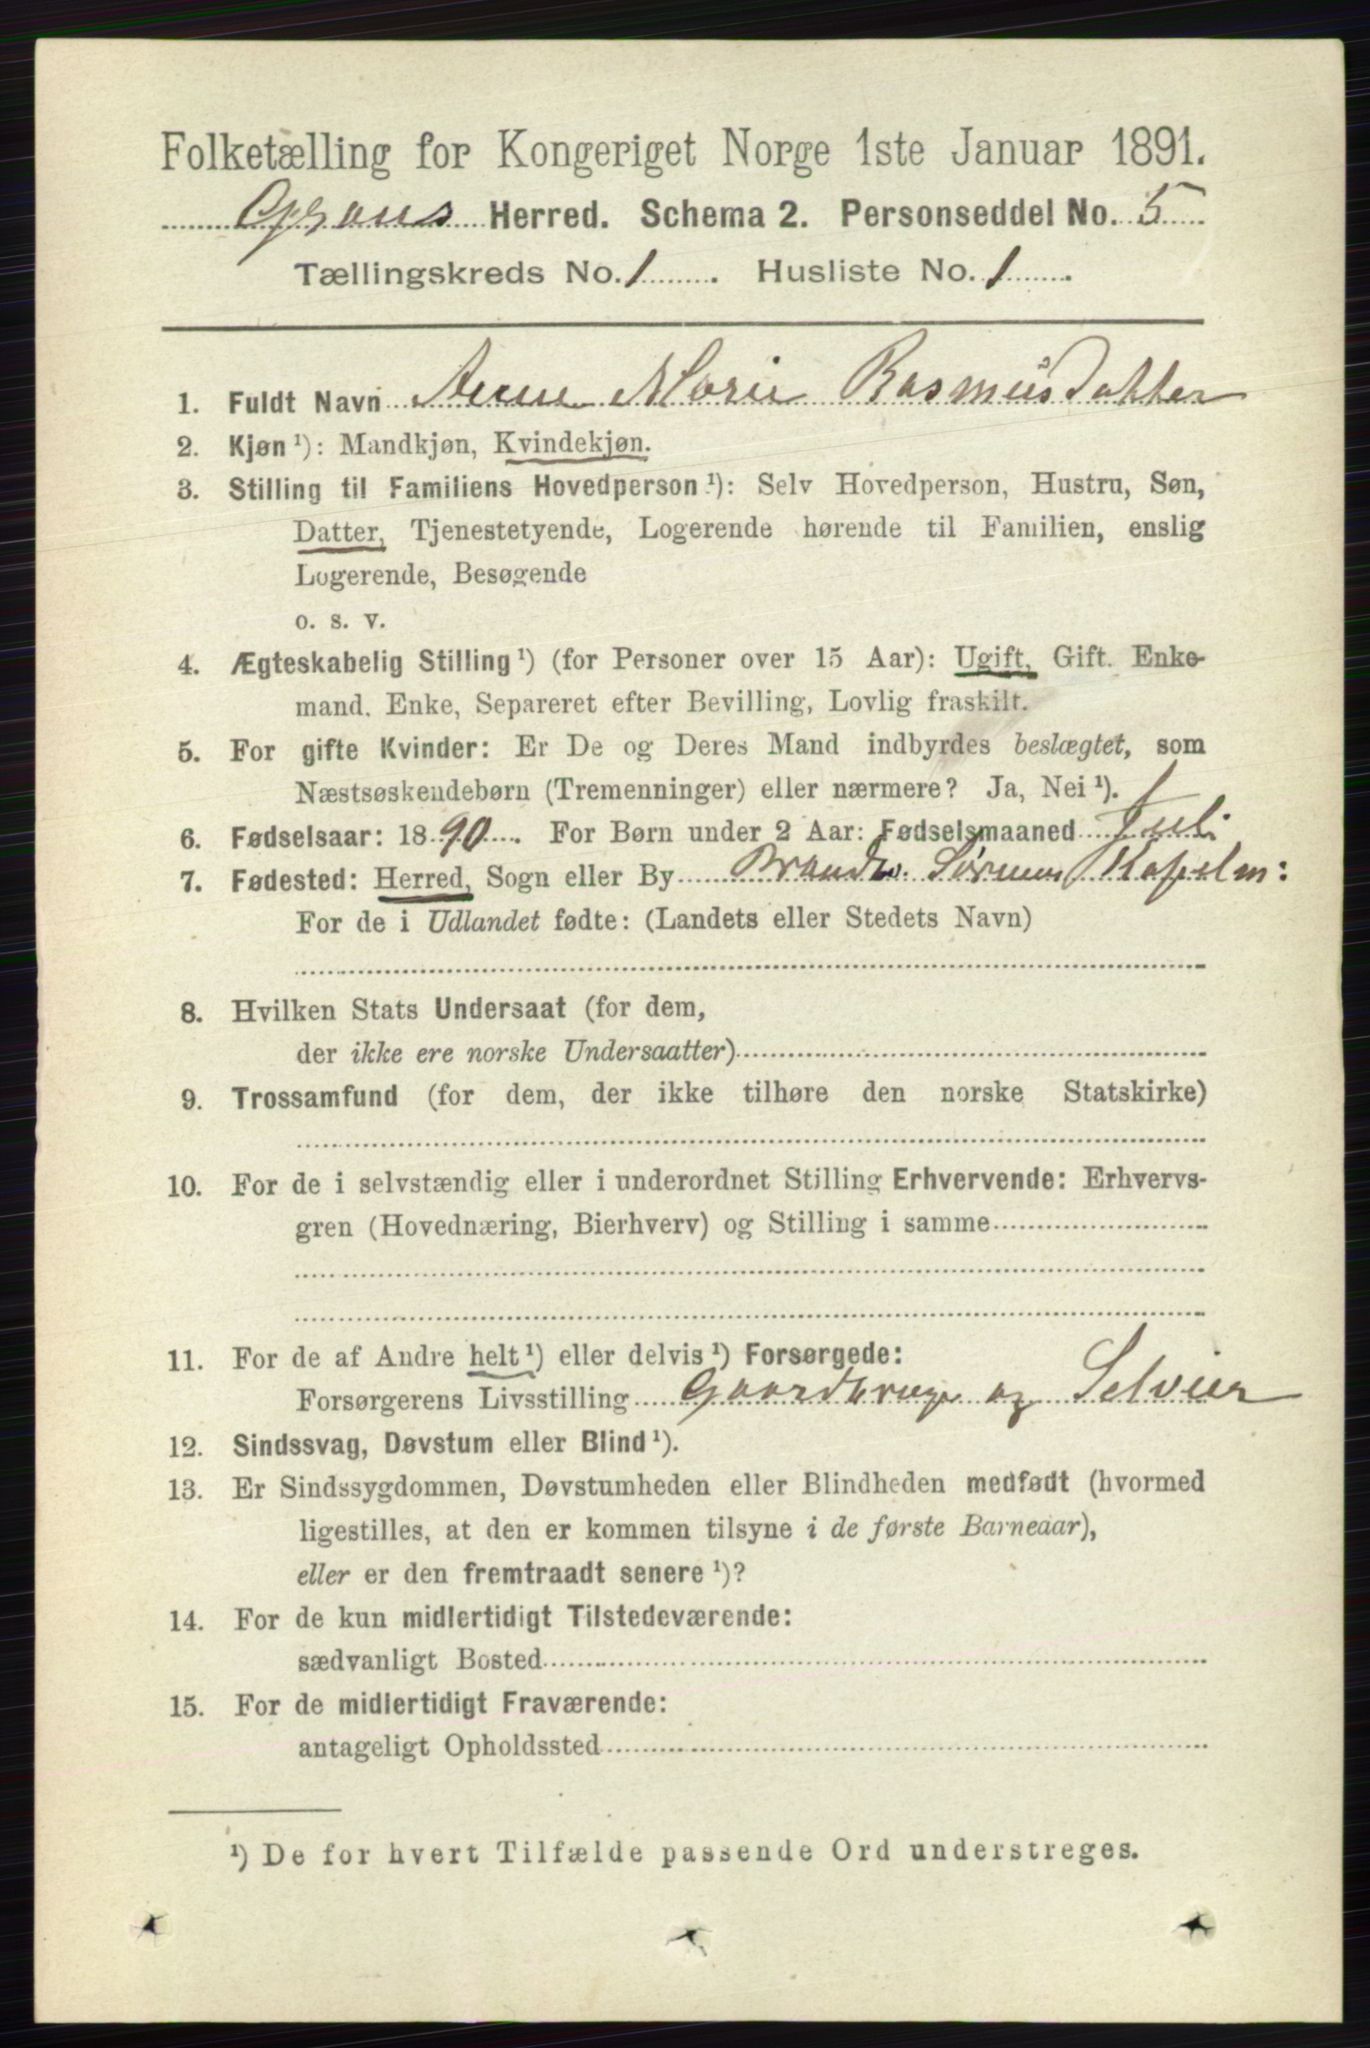 Folketælling for Kongeriget Norge 1ste Januar 1891.
Herred. Schema 2. Personseddel No. 5
Tællingskreds No. 1. Husliste No. 1.
1. Fuldt Navn Anne Marie Rasmusdatter
2. Kjøn ¹): Mandkjøn, Kvindekjøn.
3. Stilling til Familiens Hovedperson ¹): Selv Hovedperson, Hustru, Søn,
Datter, Tjenestetyende, Logerende hørende til Familien, enslig
Logerende, Besøgende
o. s. v.
4. Ægteskabelig Stilling ¹) (for Personer over 15 Aar): Ugift, Gift. Enke-
mand. Enke, Separeret efter Bevilling, Lovlig fraskilt.
5. For gifte Kvinder: Er De og Deres Mand indbyrdes beslægtet, som
Næstsøskendebørn (Tremenninger) eller nærmere? Ja, Nei ¹).
6. Fødselsaar: 1890. For Børn under 2 Aar: Fødselsmaaned Juli
7. Fødested: Herred, Sogn eller By
For de i Udlandet fødte: (Landets eller Stedets Navn)
8. Hvilken Stats Undersaat (for dem,
der ikke ere norske Undersaatter)
9. Trossamfund (for dem, der ikke tilhøre den norske Statskirke)
10. For de i selvstændig eller i underordnet Stilling Erhvervende: Erhvervs-
gren (Hovednæring, Bierhverv) og Stilling i samme
11. For de af Andre helt ¹) eller delvis ¹) Forsørgede:
Forsørgerens Livsstilling Gaardbruger og Selveier
12. Sindssvag, Døvstum eller Blind ¹).
13. Er Sindssygdommen, Døvstumheden eller Blindheden medfødt (hvormed
ligestilles, at den er kommen tilsyne i de første Barneaar),
eller er den fremtraadt senere ¹)?
14. For de kun midlertidigt Tilstedeværende:
sædvanligt Bosted
15. For de midlertidigt Fraværende:
antageligt Opholdssted
¹) De for hvert Tilfælde passende Ord understreges.